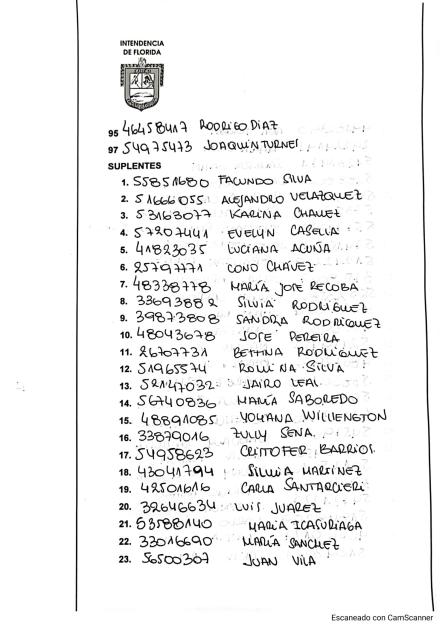 INTENDENCIA
DE FLORIDA
95 46458417 RODRIGO DIAZ
97 54975473 JOAQUIN TURNES
SUPLENTES
1. 55851680 FACUNDO SILVA
2. 51666055 ALEJANDRO VELAZQUEZ
3. 53163077 KARINA CHAVEZ
4. 57207441 EVELYN CASELLA
5. 41823035 LUCIANA ACUÑA
6. 25797771 CONO CHÁVEZ
7. 48338778 MARÍA JOSÉ RECOBA
8. 33693882 SILVIA RODRÍGUEZ
9. 39873808 SANDRA RODRIGUEZ
10. 48043678 JOSE PEREIRA
11. 26707731 BETTINA RODRÍGUEZ
12. 51965574 ROMINA SILVA
13. 52147032 JAIRO LEAL
14. 56740836 MARÍA SABOREDO
15. 48891085 YOHANA WILLIENGTON
16. 33879016 ZULLY SENA
17. 54958623 CRISTOFER BARRIOS
18. 43041794 SILVIA MARTINEZ
19. 42501616 CARLA SANTARCIERI
20. 32646634 LUIS JUAREZ
21. 53588140 MARIA ICASURIAGA
22. 33016690 MARÍA SANCHEZ
23. 56500367 JUAN VILA
Escaneado con CamScanner